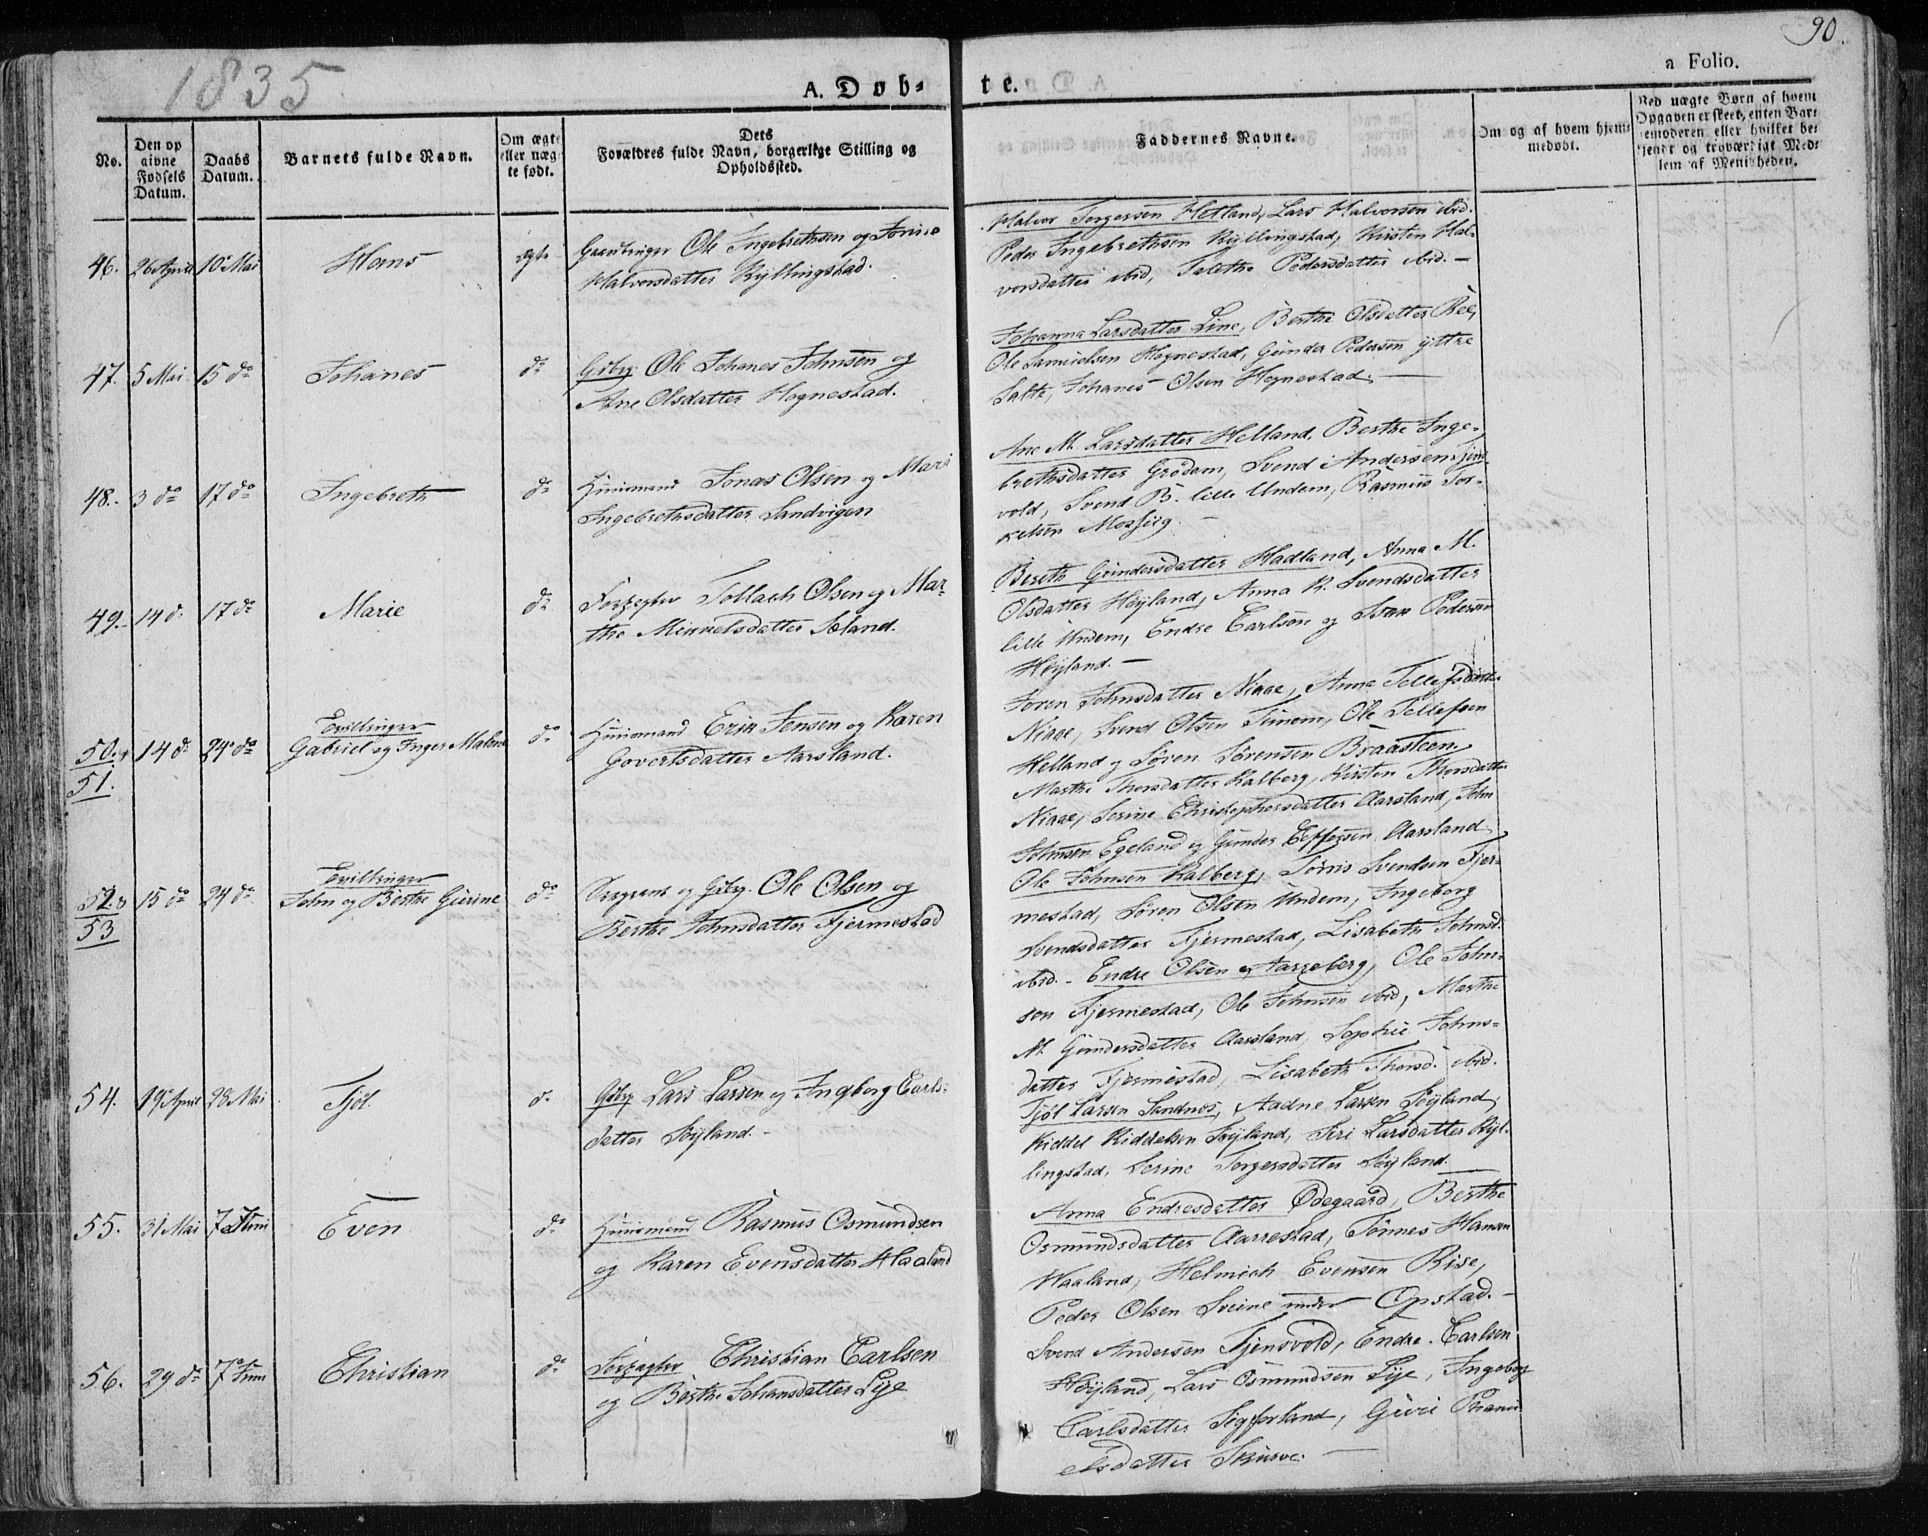 90.
1835
a Folio.
A. Døb-
te.
No.
Den op
givne
Fødsels
Datum.
Daabs
Datum.
Barnets fulde Navn.
Om ægte
eller uæg-
te født.
Dets
Forældres fulde Navn, borgerlige Stilling og
Opholdssted.
Faddernes Navne.
Om og af hvem hjem-
medøbt.
Ved uægte Børn af hvem
Opgaven er skeet, enten Bar-
nemoderen eller hvilket be-
kjendt og troværdigt Med-
lem af Menigheden.
46. 26 April 10 Mai Hans ægte Gaardbruger Ole Ingebrethsen og
Halvorsdatter Kyllingstad.
Halvor Torgersen Hetland, Lars Halvorsen ibid.
Peder Ingebrethsen Kyllingstad, Kirsten Hal-
vorsdatter ibid, Talethe Pedersdatter ibid. -
47. 5 Mai 15 do Johanes do Gdbr Ole Johanes Johnsen og
Ane Olsdatter Hognestad.
Johanna Larsdatter Line, Berthe Olsdatter Ree,
Ole Samuelsen Hognestad, Gunder Pedersen yttre
Salte, Johanes Olsen Hognestad. -
48. 3 do 17 do Ingebreth do Huusmand Jonas Olsen og Mari
Ingebrethsdatter Sandvigen
Ane M. Larsdatter Helland, Berthe Inge-
brethsdatter Grødam, Svend Andersen Tjens-
vold, Svend B. lille Undem, Rasmus Tor-
kelsen Mossiig. -
49. 14 d. 17 do Marie do Forpagter Tollach Olsen og Mar-
the Mikkelsdatter Soland.
Bereth Gundersdatter Hadland, Anna M.
Olsdatter Høyland, Anna K. Svendsdatter
lille Undem, Endre Carlsen og Sven Pedersen
Høyland. -
50 & 14 d. 24 do Tvillinger
51. Gabriel og Inger Malene do Huusmand Erik Jensen og Karen
Govertsdatter Aarsland.
Joren Johnsdatter Niaae, Anna Tellefsdatter
Niaae, Svend Olsen Tunem, Ole Tellefsen
Helland og Søren Sørensen Braasteen,
Marthe Thorsdatter Kalberg, Kirsten Thorsdatter
Niaae, Serine Christophersdatter Aarsland, John
Johnsen Egeland og Gunder Aarsland.
52 & 15 do 24 do Tvillinger
53 John og Berthe Gurine do og Gdbr. Ole Olsen og
Berthe Johnsdatter Fjermestad
Ole Johnsen Kalberg, Tønis Svendsen Fjer-
mestad, Søren Olsen Undem, Ingeborg
Svendsdatter Fjermestad, Lisabeth Johnsd.
ibid. - Endre Olsen Aarreberg, Ole John-
sen Fjermestad, Ole Johnsen ibid, Marthe
M. Gundersdatter Aarsland, Sophie Johns-
datter Fjermestad, Lisabeth Thorsd. ibid.
54. 19 April 28 Mai Tjøl d. Gdbr Lars Larsen og Ingborg Carls-
datter Søyland. -
Tjøl Larsen Sandnes, Aadne Larsen Søyland,
Kiddel Kiddelsen Søyland, Siri Larsdatter Kyl-
lingstad, Serine Torgersdatter Søyland.
55. 31 Mai 7 Juni Even do Huusmand Rasmus Osmundsen
og Karen Evensdatter Haaland
Anna Endresdatter Ødegaard, Berthe
Osmundsdatter Aarrestad, Tønnes Hansen
Haaland, Helmich Evensen Rise,
Peder Olsen Sveine under Opstad. -
56. 29 do 7 Juni Christian do Forpagter Christian Carlsen
og Berthe Johansdatter Lye
Svend Andersen Tjensvold, Endre Carlsen
Høyland, Lars Osmundsen Lye, Ingeborg
Carlsdatter Sigferland, Guri
datter Skurve. -